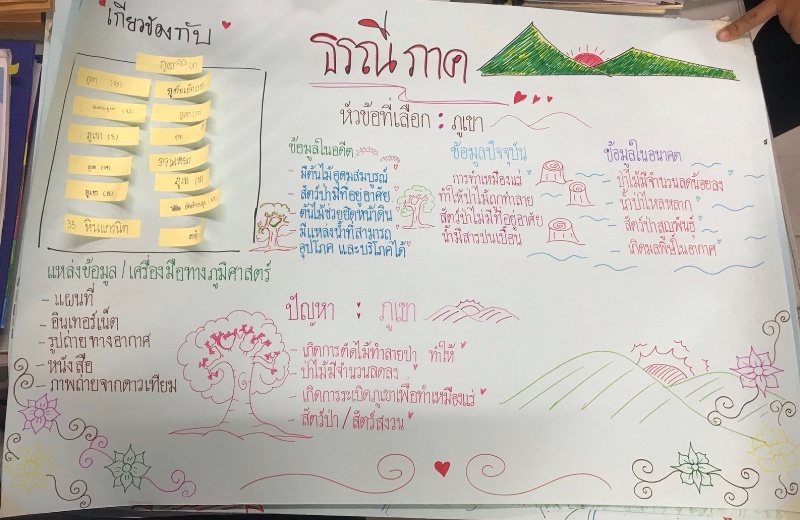 เกี่ยวข้องกับ
ธรณีภาค
หัวข้อที่เลือก : ภูเขา
ภูเขา
ภูเขา
ภูเขา
ภูเขา
ภูเขา
35 หินแกรนิต
ข้อมูลในอดีต
- มีต้นไม้อุดมสมบูรณ์
- สัตว์ป่ามีที่อยู่อาศัย
- ต้นไม้ช่วยยึดหน้าดิน
- มีแหล่งน้ำที่สามารถ
อุปโภค และบริโภคได้
ข้อมูลปัจจุบัน
การทำเหมืองแร่
ทำให้ป่าไม้ถูกทำลาย
สัตว์ป่าไม่มีที่อยู่อาศัย
น้ำมีสารปนเปื้อน
ข้อมูลในอนาคต
- ป่าไม้มีจำนวนลดน้อยลง
- น้ำป่าไหลหลาก
- สัตว์ป่าสูญพันธุ์
- เกิดมลพิษในอากาศ
แหล่งข้อมูล / เครื่องมือทางภูมิศาสตร์
- แผนที่
- อินเทอร์เน็ต
- รูปถ่ายทางอากาศ
- หนังสือ
- ภาพถ่ายจากดาวเทียม
ปัญหา : ภูเขา
- เกิดการตัดไม้ทำลายป่า ทำให้
ป่าไม้มีจำนวนลดลง
- เกิดการระเบิดภูเขาเพื่อทำเหมืองแร่
- สัตว์ป่า / สัตว์สงวน